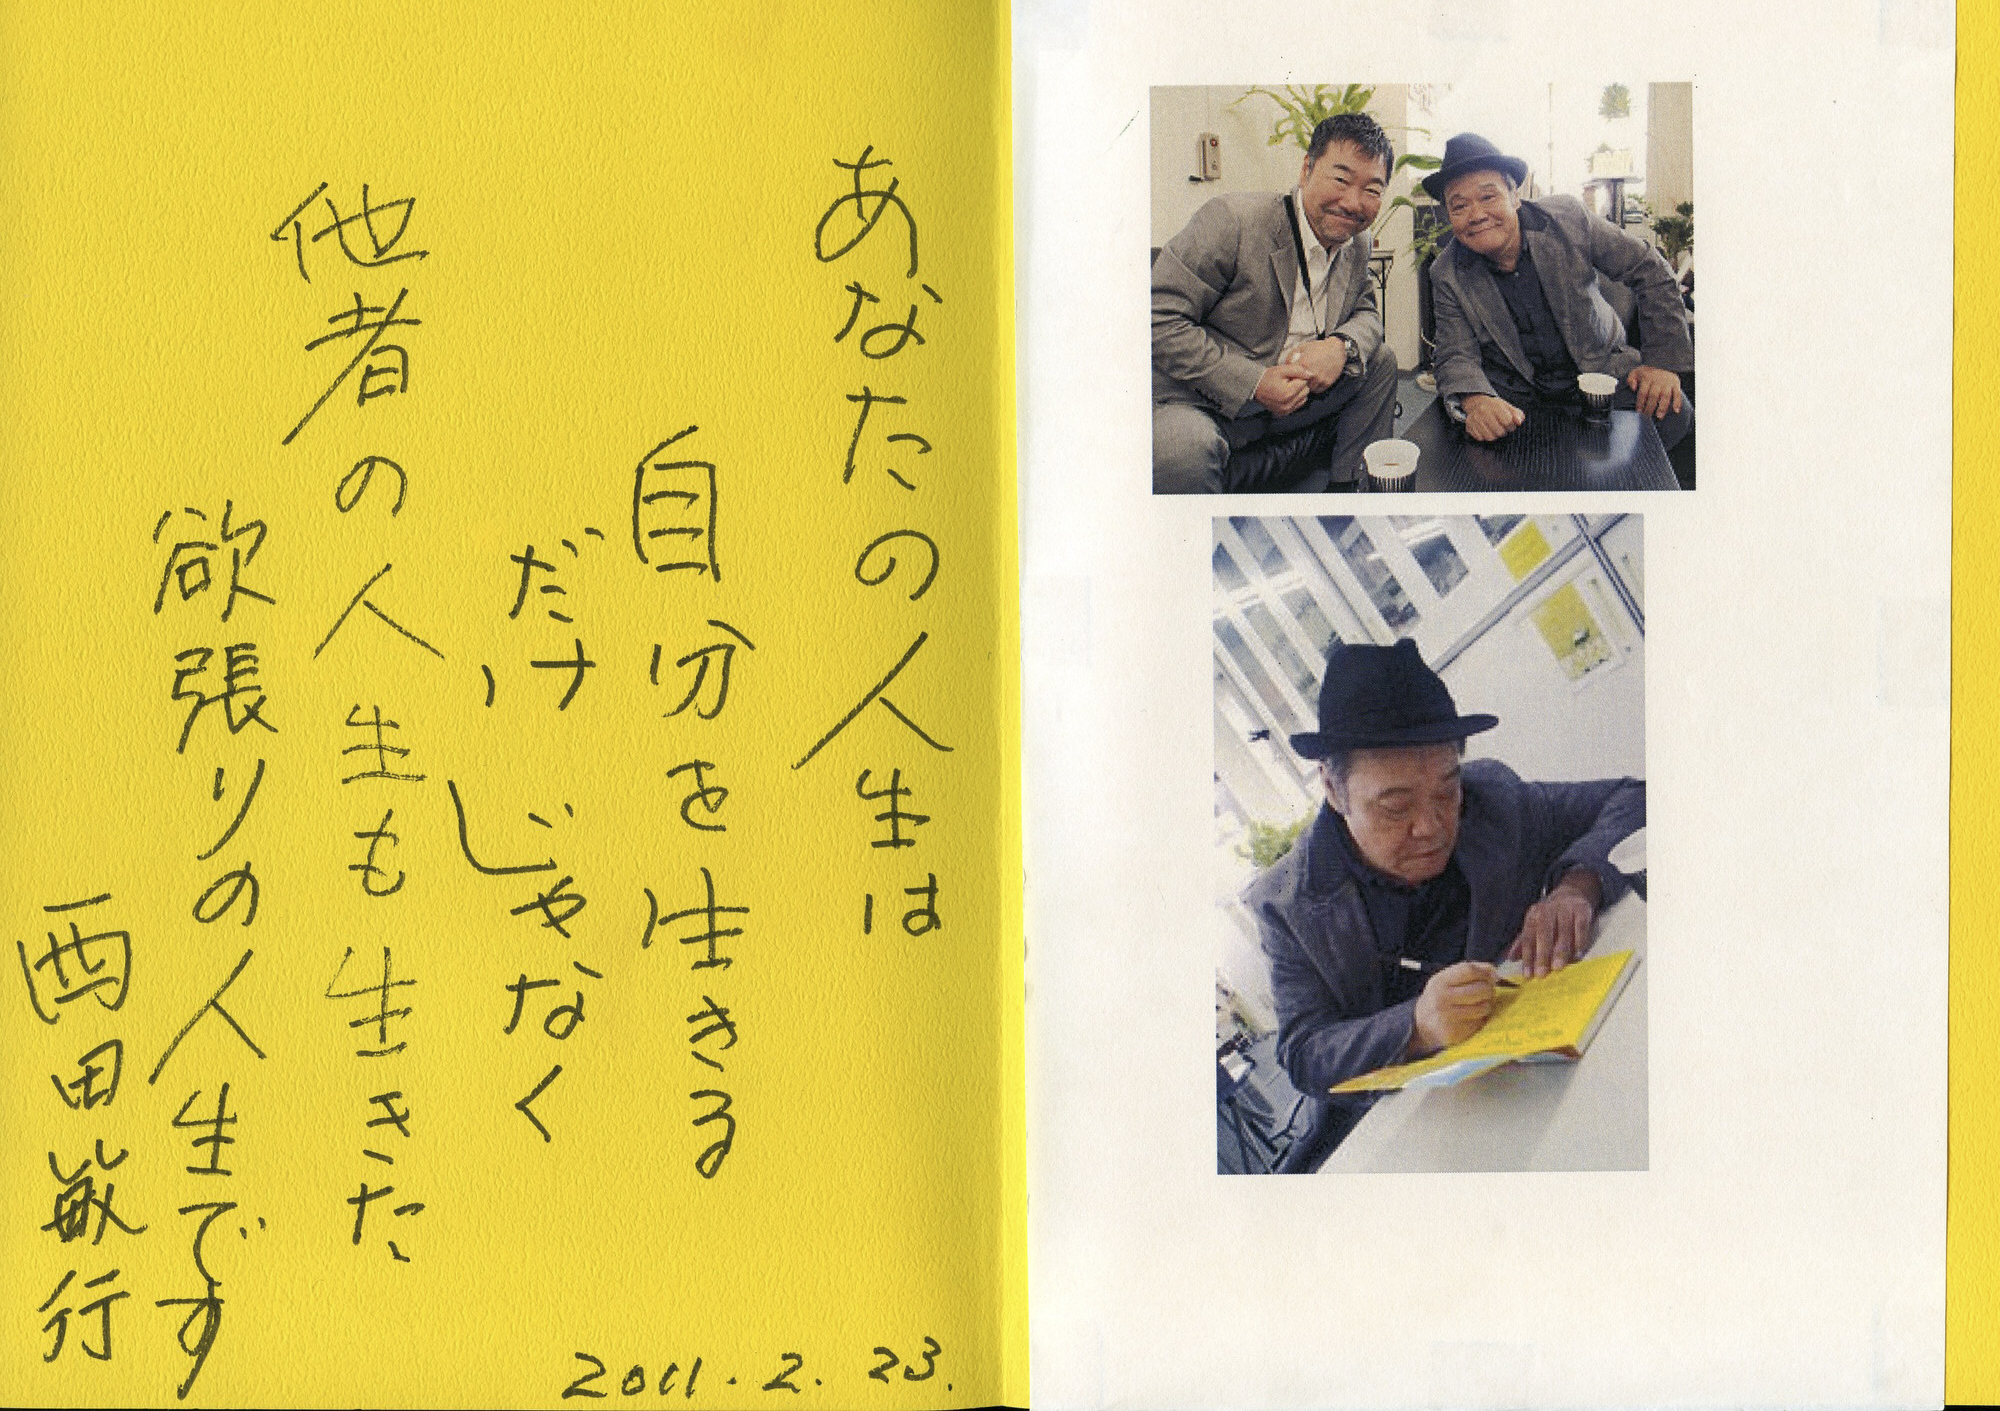 あなたの人生は
自分を生きる
だけじゃなく
他者の人生も生きたた
欲張りの人生です
西田敏行
2011.2.23.